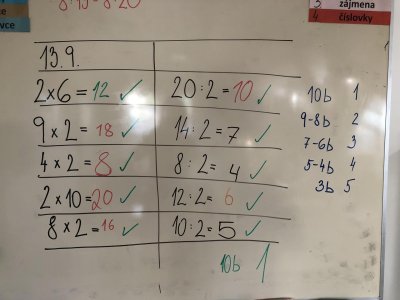 3 zájmena
4 číslovky
vce
13.9.
2x6=12 ✓ 20:2=10 ✓
9x2=18 ✓ 14:2=7 ✓
4x2=8 ✓ 8:2=4 ✓
2x10=20 ✓ 12:2=6 ✓
8x2=16 ✓ 10:2=5 ✓
10b 1
10b 1
9-8b 2
7-6b 3
5-4b 4
3b 5